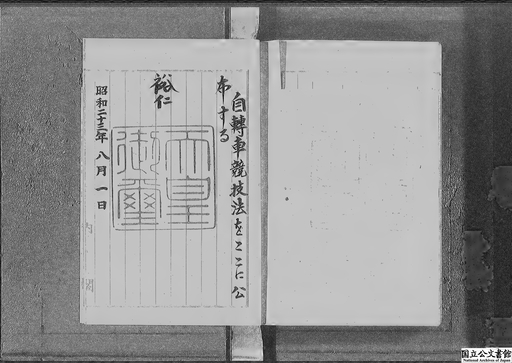 自轉車競技法をここに公
布する
裕仁
天皇
御璽
昭和二十三年八月一日
国立公文書館
National Archives of Japan